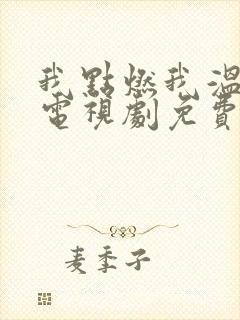 我點燃我溫
電視劇免費
麦季子